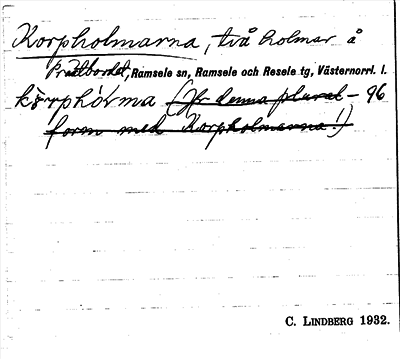 Korpholmarna, två holmar å
Prästbordet, Ramsele sn, Ramsele och Resele tg, Västernorrl. l.
kŏrphórma (Jfr denna plural- 96
form med Korpholmarna!)
C. LINDBERG 1932.